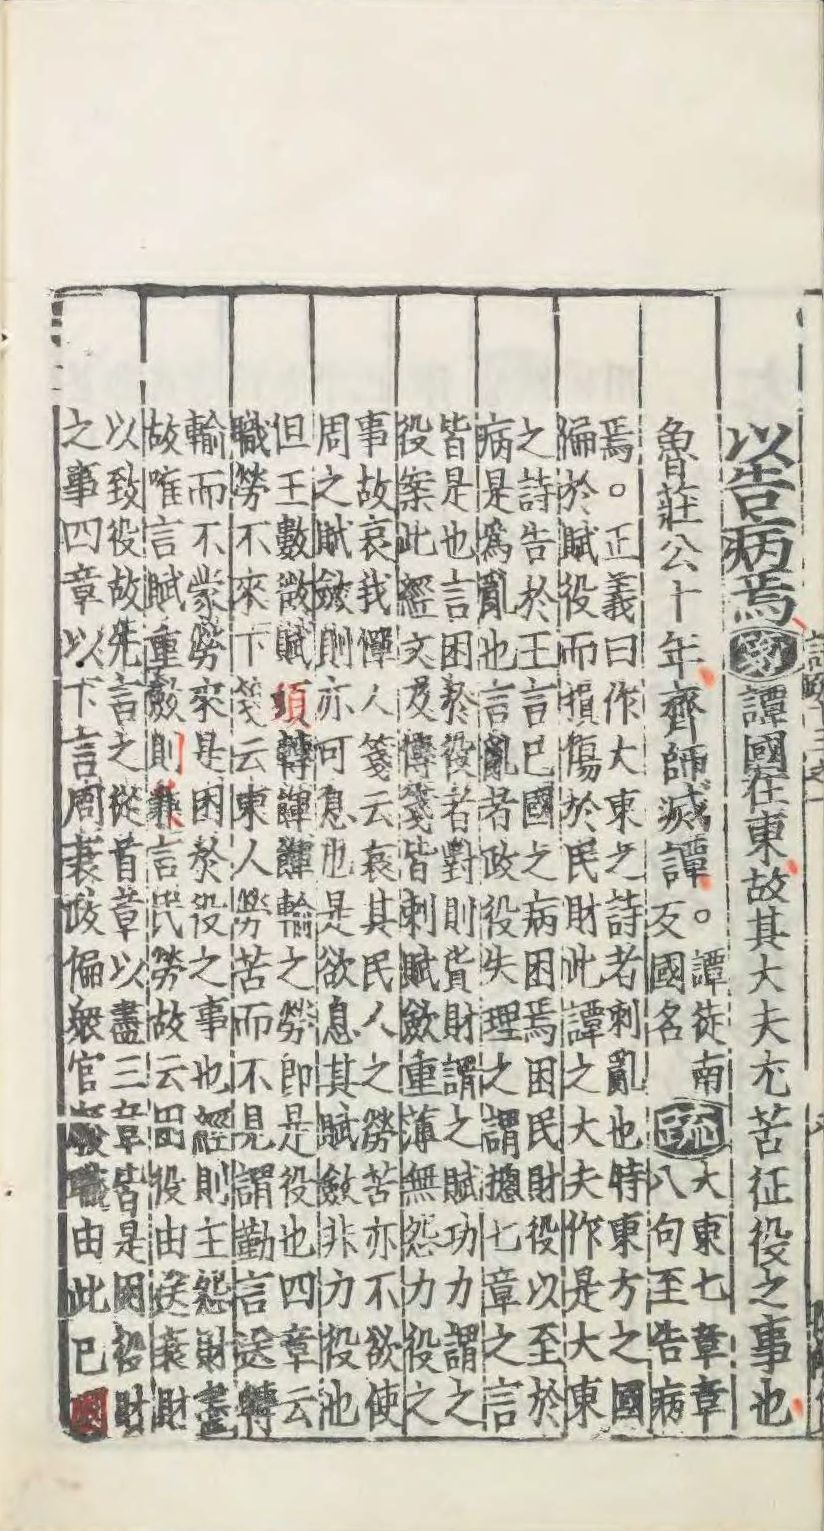 以告病焉箋譚國在東故其大夫尤苦征役之事也
魯莊公十年齊師滅譚。譚徒南
反國名
疏大東七章章
八句至告病
焉。正義曰作大東之詩者刺亂也時東方之國
偏於賦役而損傷於民財此譚之大夫作是大東
之詩告於王言已國之病困焉困民財役以至於
病是為亂也言亂者政役失理之謂揔七章之言
皆是也言困於役者對則貨財謂之賦功力謂之
役案此經文及傳箋皆刺賦斂重薄無怨力役之
事故哀我憚人箋云哀其民人之勞苦亦不欲使
周之賦斂則亦可息也是欲息其賦斂非力役也
但王數徴賦須轉餫餫輸之勞即是役也四章云
職勞不來下箋云東人勞苦而不見謂勤言送轉
輸而不蒙勞來是困於役之事也經則主怨財盡
故唯言賦重斂則兼言民勞故云困役由送衰財
以致役故先言之從首章以盡三章皆是困役財
之事四章以下言周衰政偏衆官廢職由此已